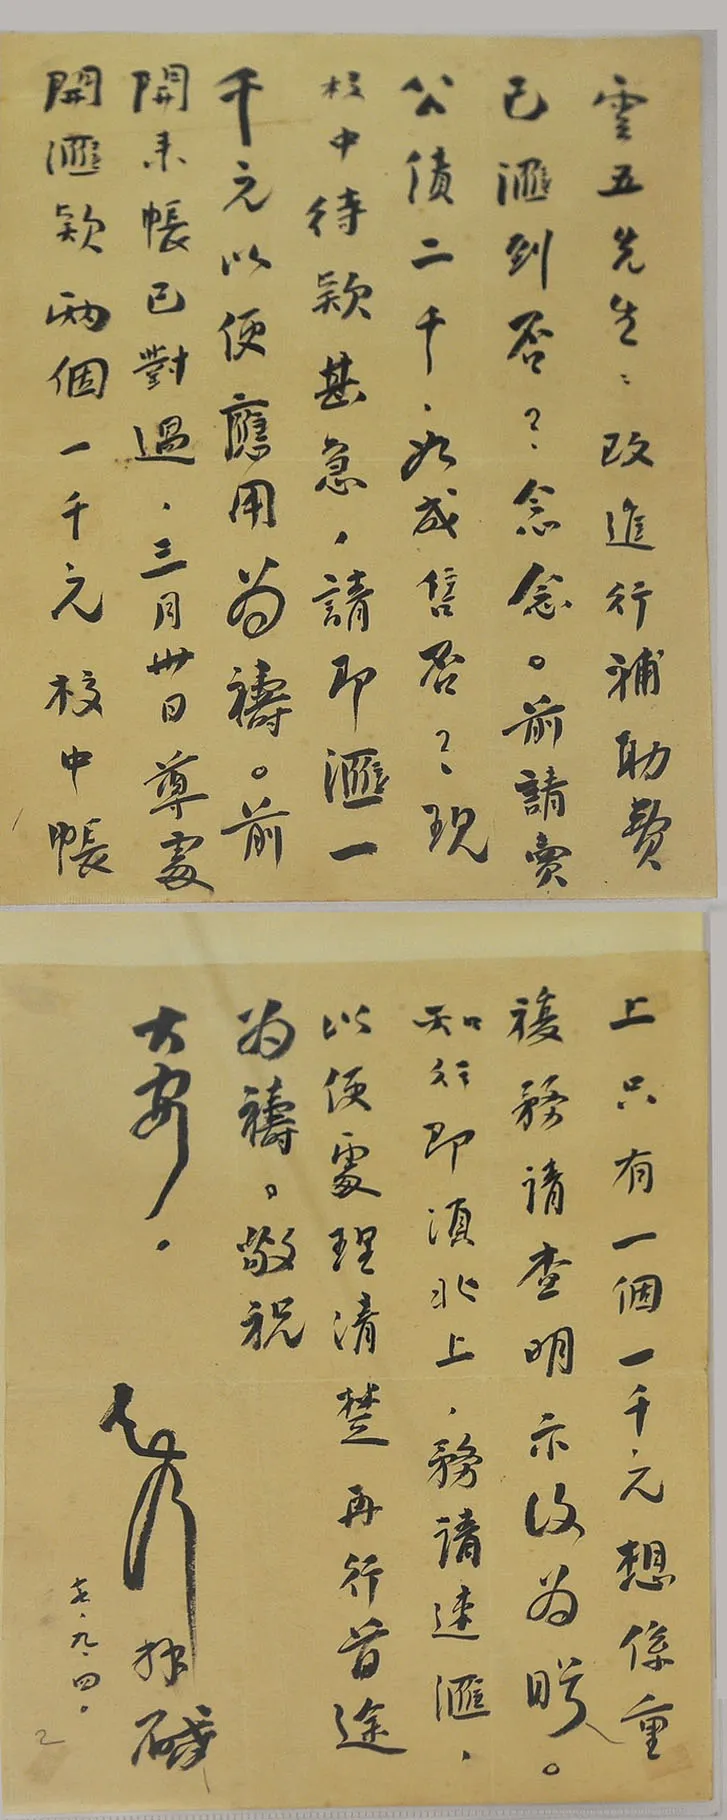 雲五先生：改進行補助費
已滙到否？念念。前請賣
公債二千，如成售否？現
校中待欵甚急，請即滙一
千元以便應用为禱。前
開來帳已對過，三月卅日尊處
開滙欵兩個一千元校中帳
上只有一個一千元想係重
複務請查明示復为盼。
知行即須北上，務請速滙，
以便處理清楚再行首途
为禱。敬祝
大安。
知行 拜啟
七、九、四。
2